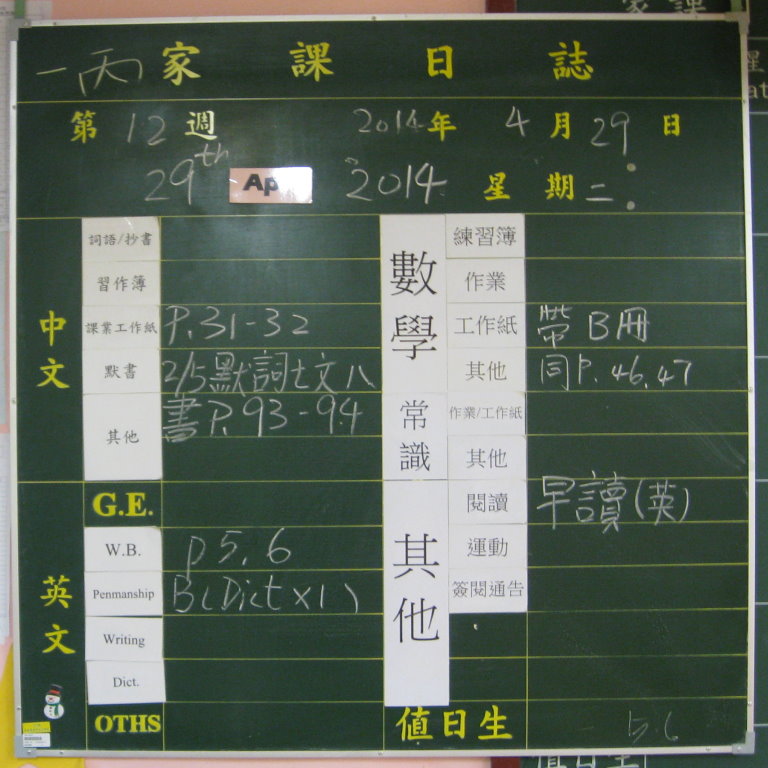 一丙 家課日誌
第12週 2014年4月29日
29th Ap 2014 星期二
中文
詞語/抄書
習作簿
課業工作紙 P.31-32
默書 2/5默詞七文八
其他 書P.93-94
英文
G.E.
W.B. p5,6
Penmanship B(Dict×1)
Writing
Dict.
OTHS
數學
練習簿
作業
工作紙 帶B冊
其他 同P.46,47
常識
作業/工作紙
其他
其他
閱讀 早讀(英)
運動
簽閱通告
值日生 5,6